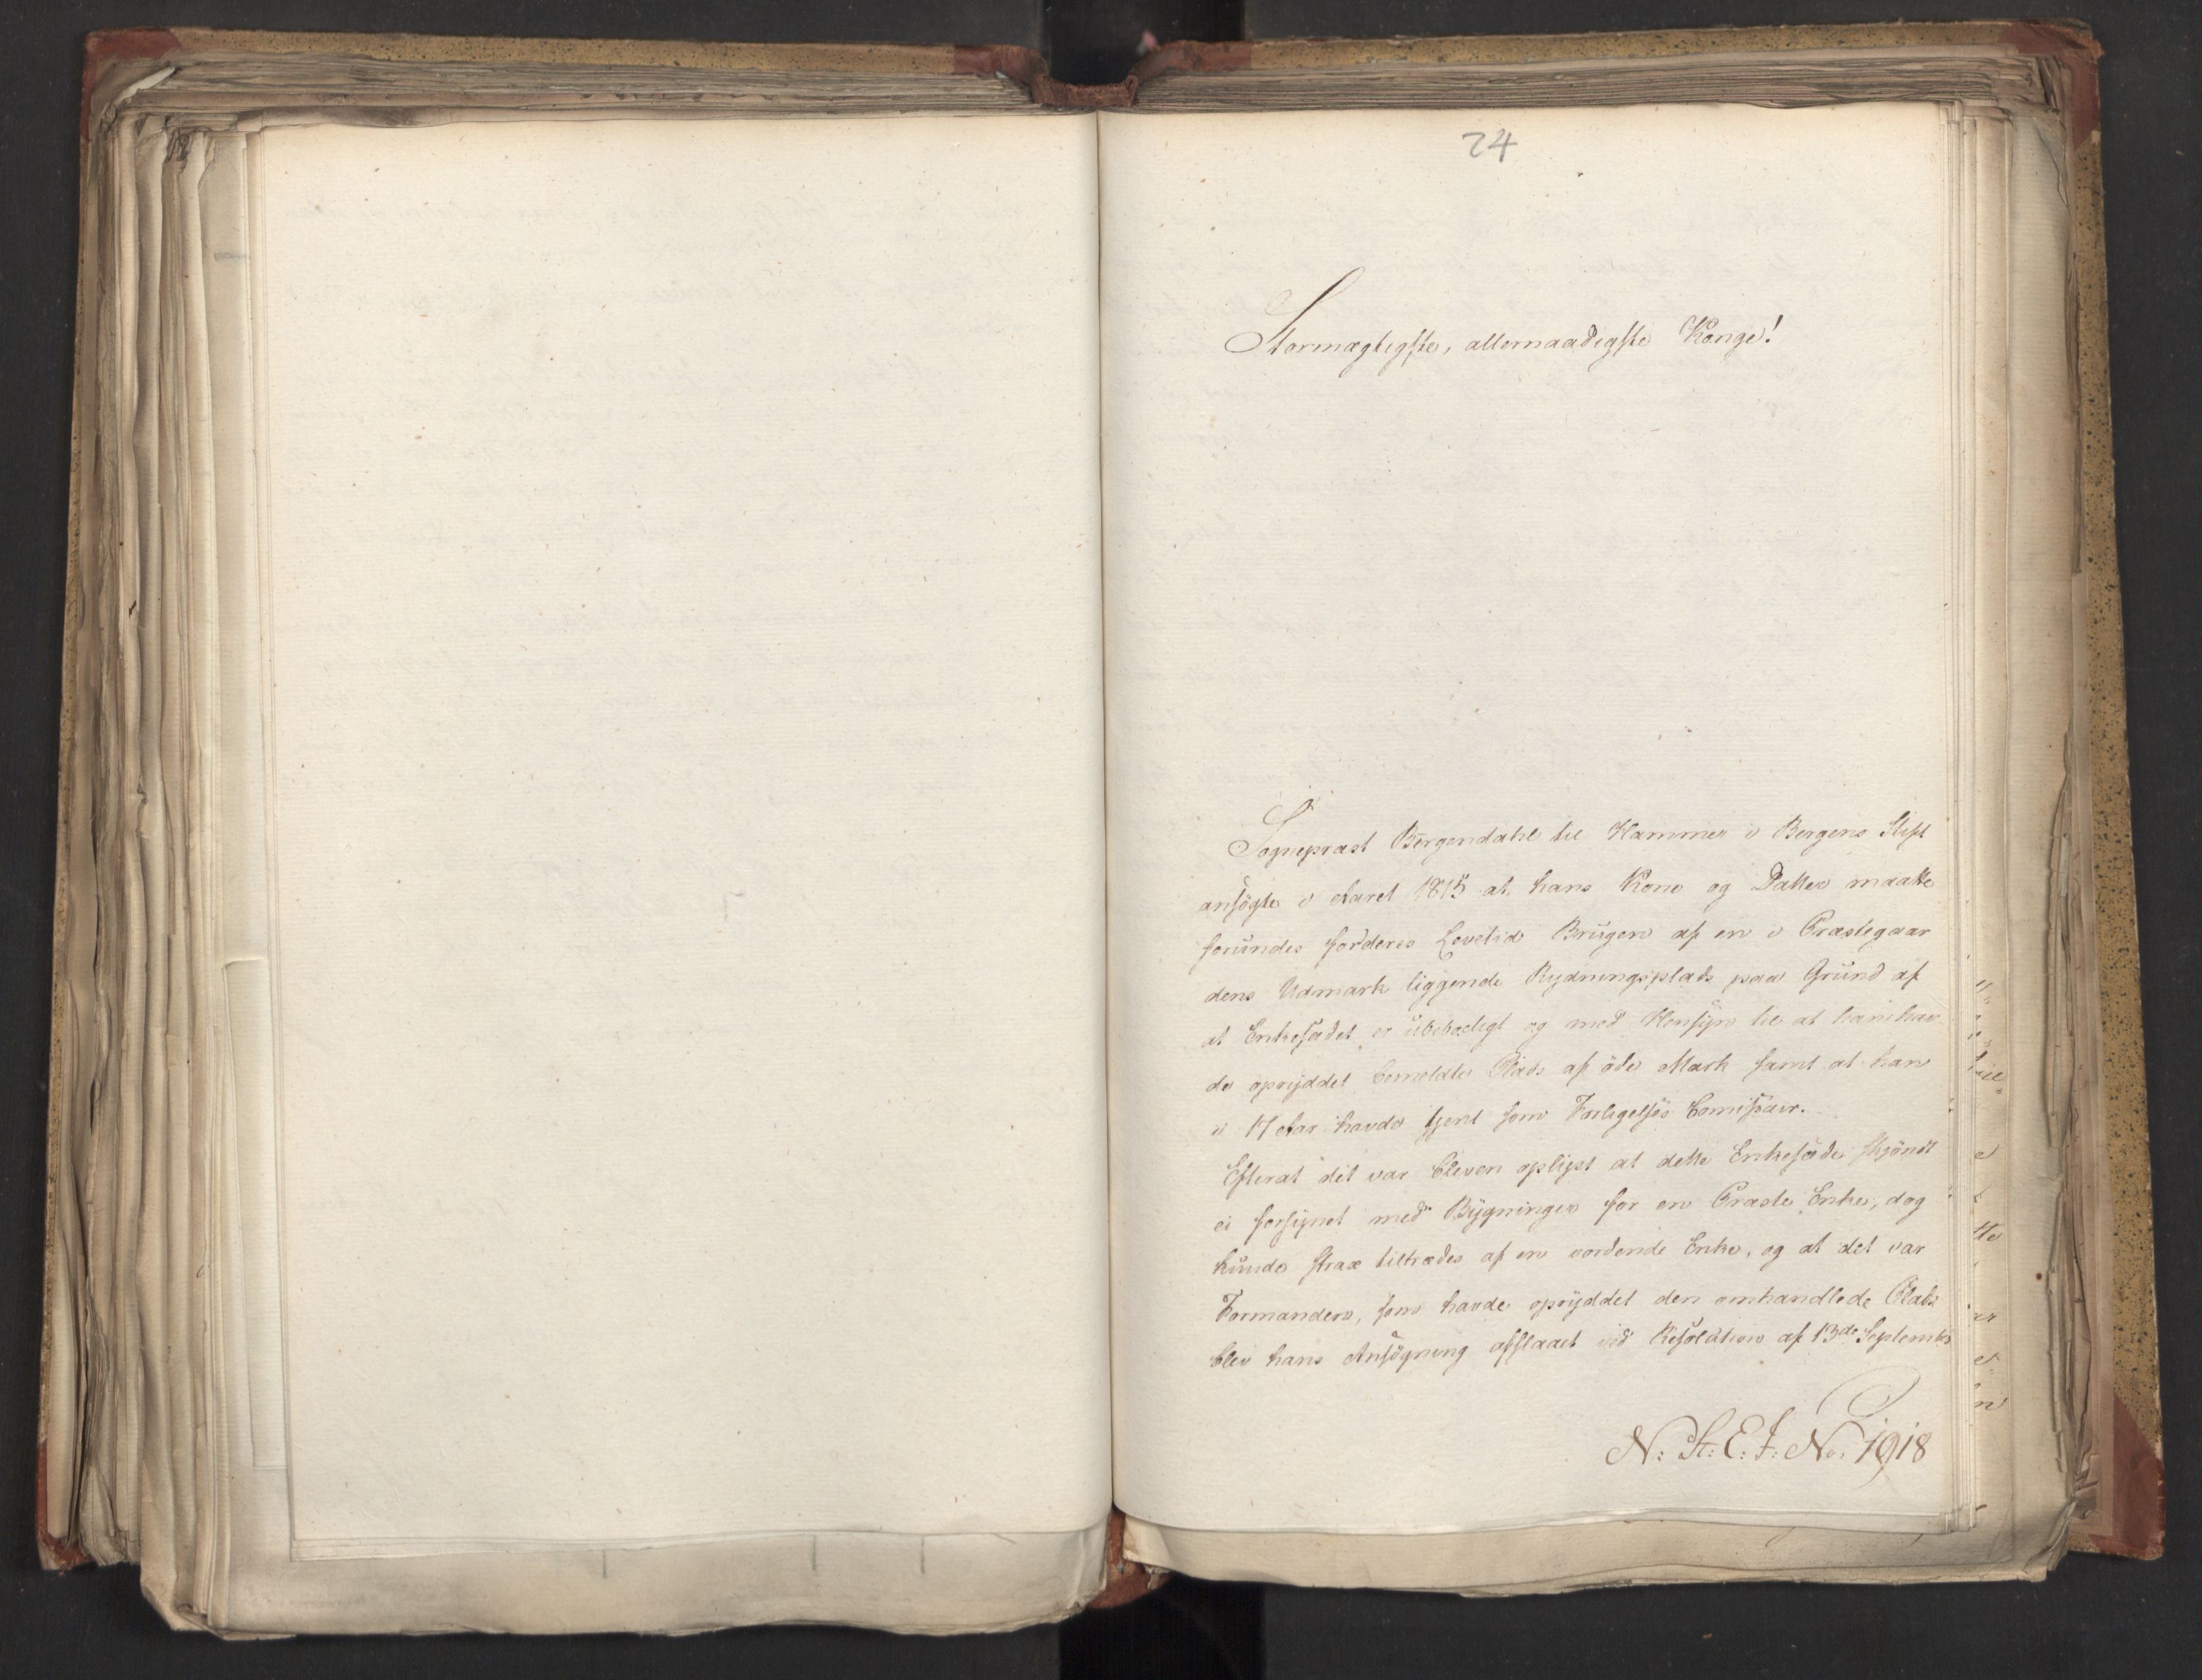 24
Stormægtigste, allernaadigste Konge!
Sognepræst Bergendahl til Hammer i Bergens Stift
ansögte i Aaret 1815 at hans Kone og Datter maatte
forundes for deres Levetid Brugen af en i Præstegaar
dens Udmark liggende Rydningsplads paa Grund af
at Enkesædet er ubebygt og med Hensyn til at han hav
de opryddet bemeldte Plads af öde Mark samt at han
i 17 Aar havde tjent som Forligelses Comissair.
Efterat det var bleven oplyst at dette Enkesæde skjöndt
ei forsynet med Bygninger for en Præste Enke, dog
kunde strax tiltrædes af en vordende Enke, og at det var
Formanden, som havde opryddet den omhandlede Plads
blev hans Ansögning afslaaet ved Resolution af 13de September
N: St: E: J: No. 1918